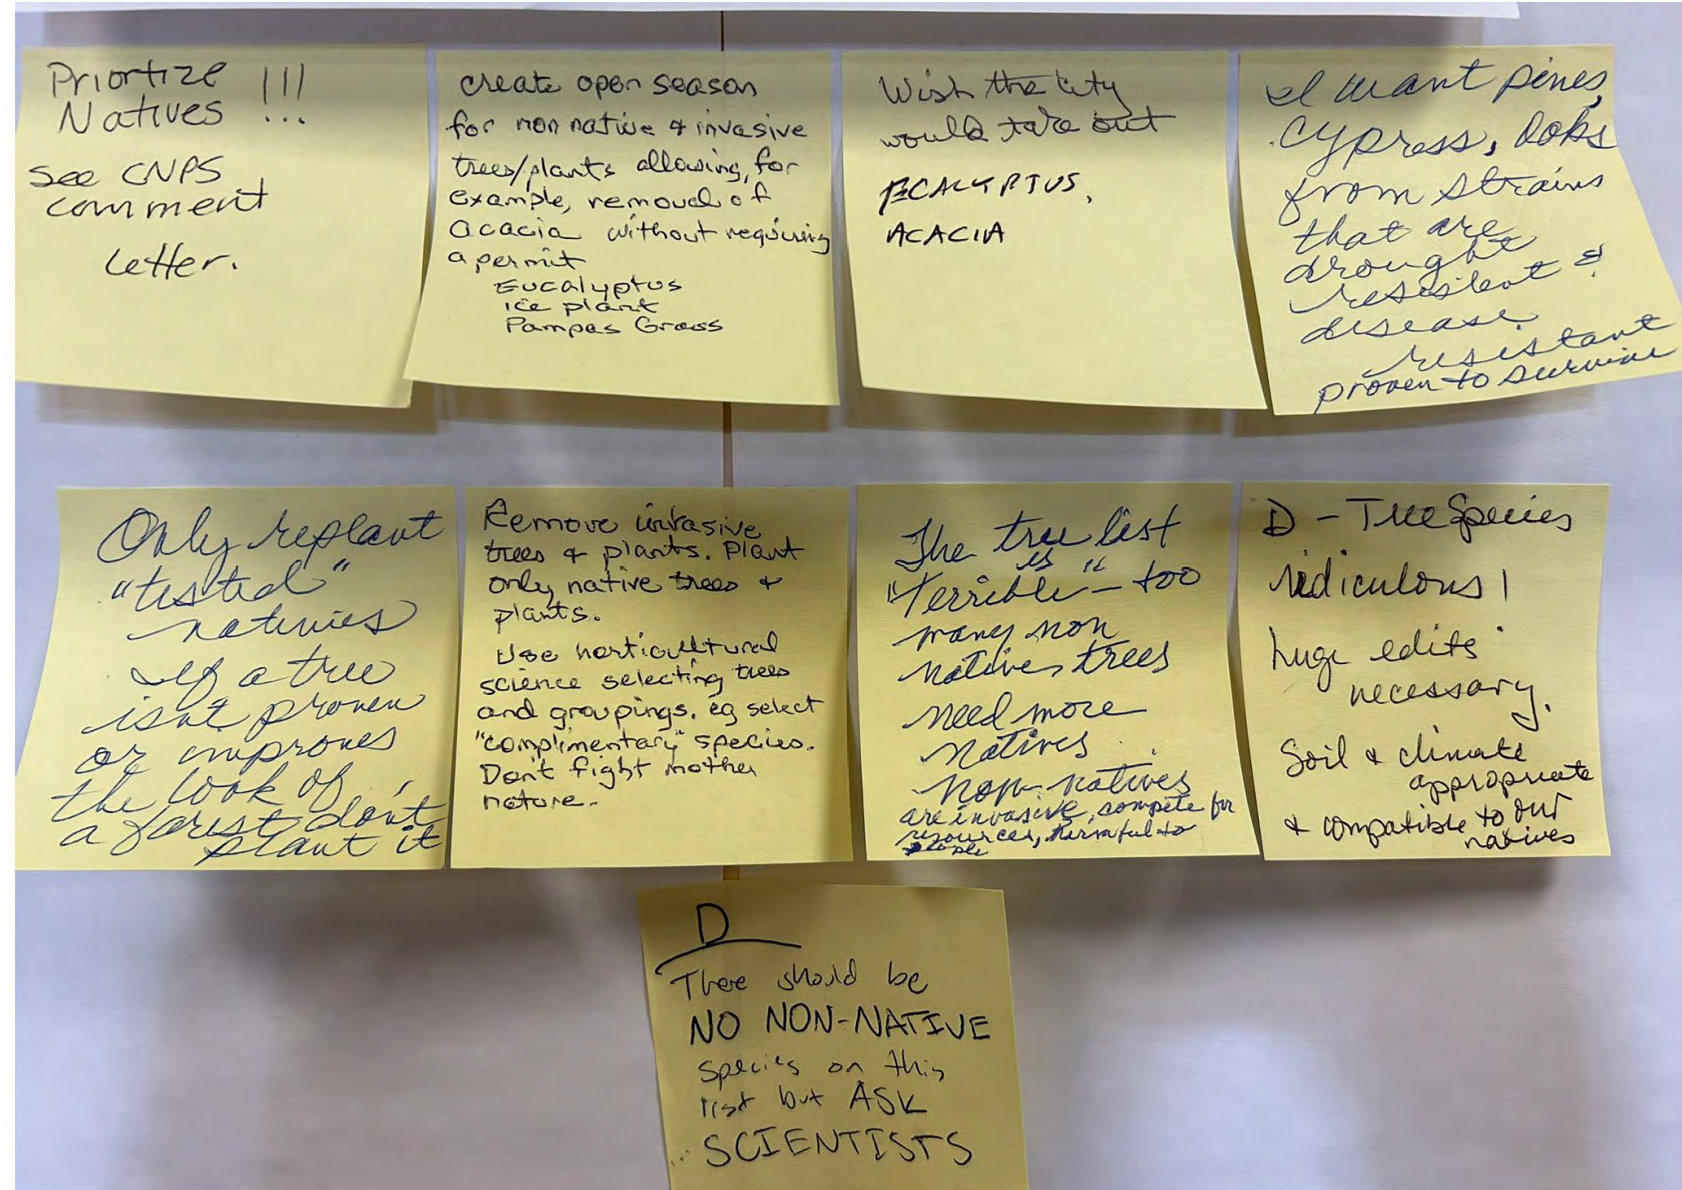 Priortize
Natives !!!
see CNPS
comment
Letter.
create open season
for non native & invasive
trees/plants allowing, for
example, removal of
acacia without requiring
a permit
Eucalyptus
ice plant
Pampas Grass
Wish the city
would take out
ECALYPTUS,
ACACIA
I want pines,
cypress, oaks
from strains
that are
drought
resistent &
disease
resistant
proven to survive
Only replant
"tested"
natives
If a tree
isnt proven
or improves
the look of
a forest don't
plant it
Remove invasive
trees & plants. Plant
only native trees &
plants.
Use horticultural
science selecting trees
and groupings. eg select
"complimentary" species.
Don't fight mother
nature.
The tree list
is
"Terrible" - too
many non
natives trees
need more
natives
non-natives
are invasive, compete for
resources, harmful to
D - Tree Species
ridiculous!
huge edits
necessary.
Soil & climate
appropriate
& compatible to our
natives
D
There should be
NO NON-NATIVE
species on this
list but ASK
SCIENTISTS